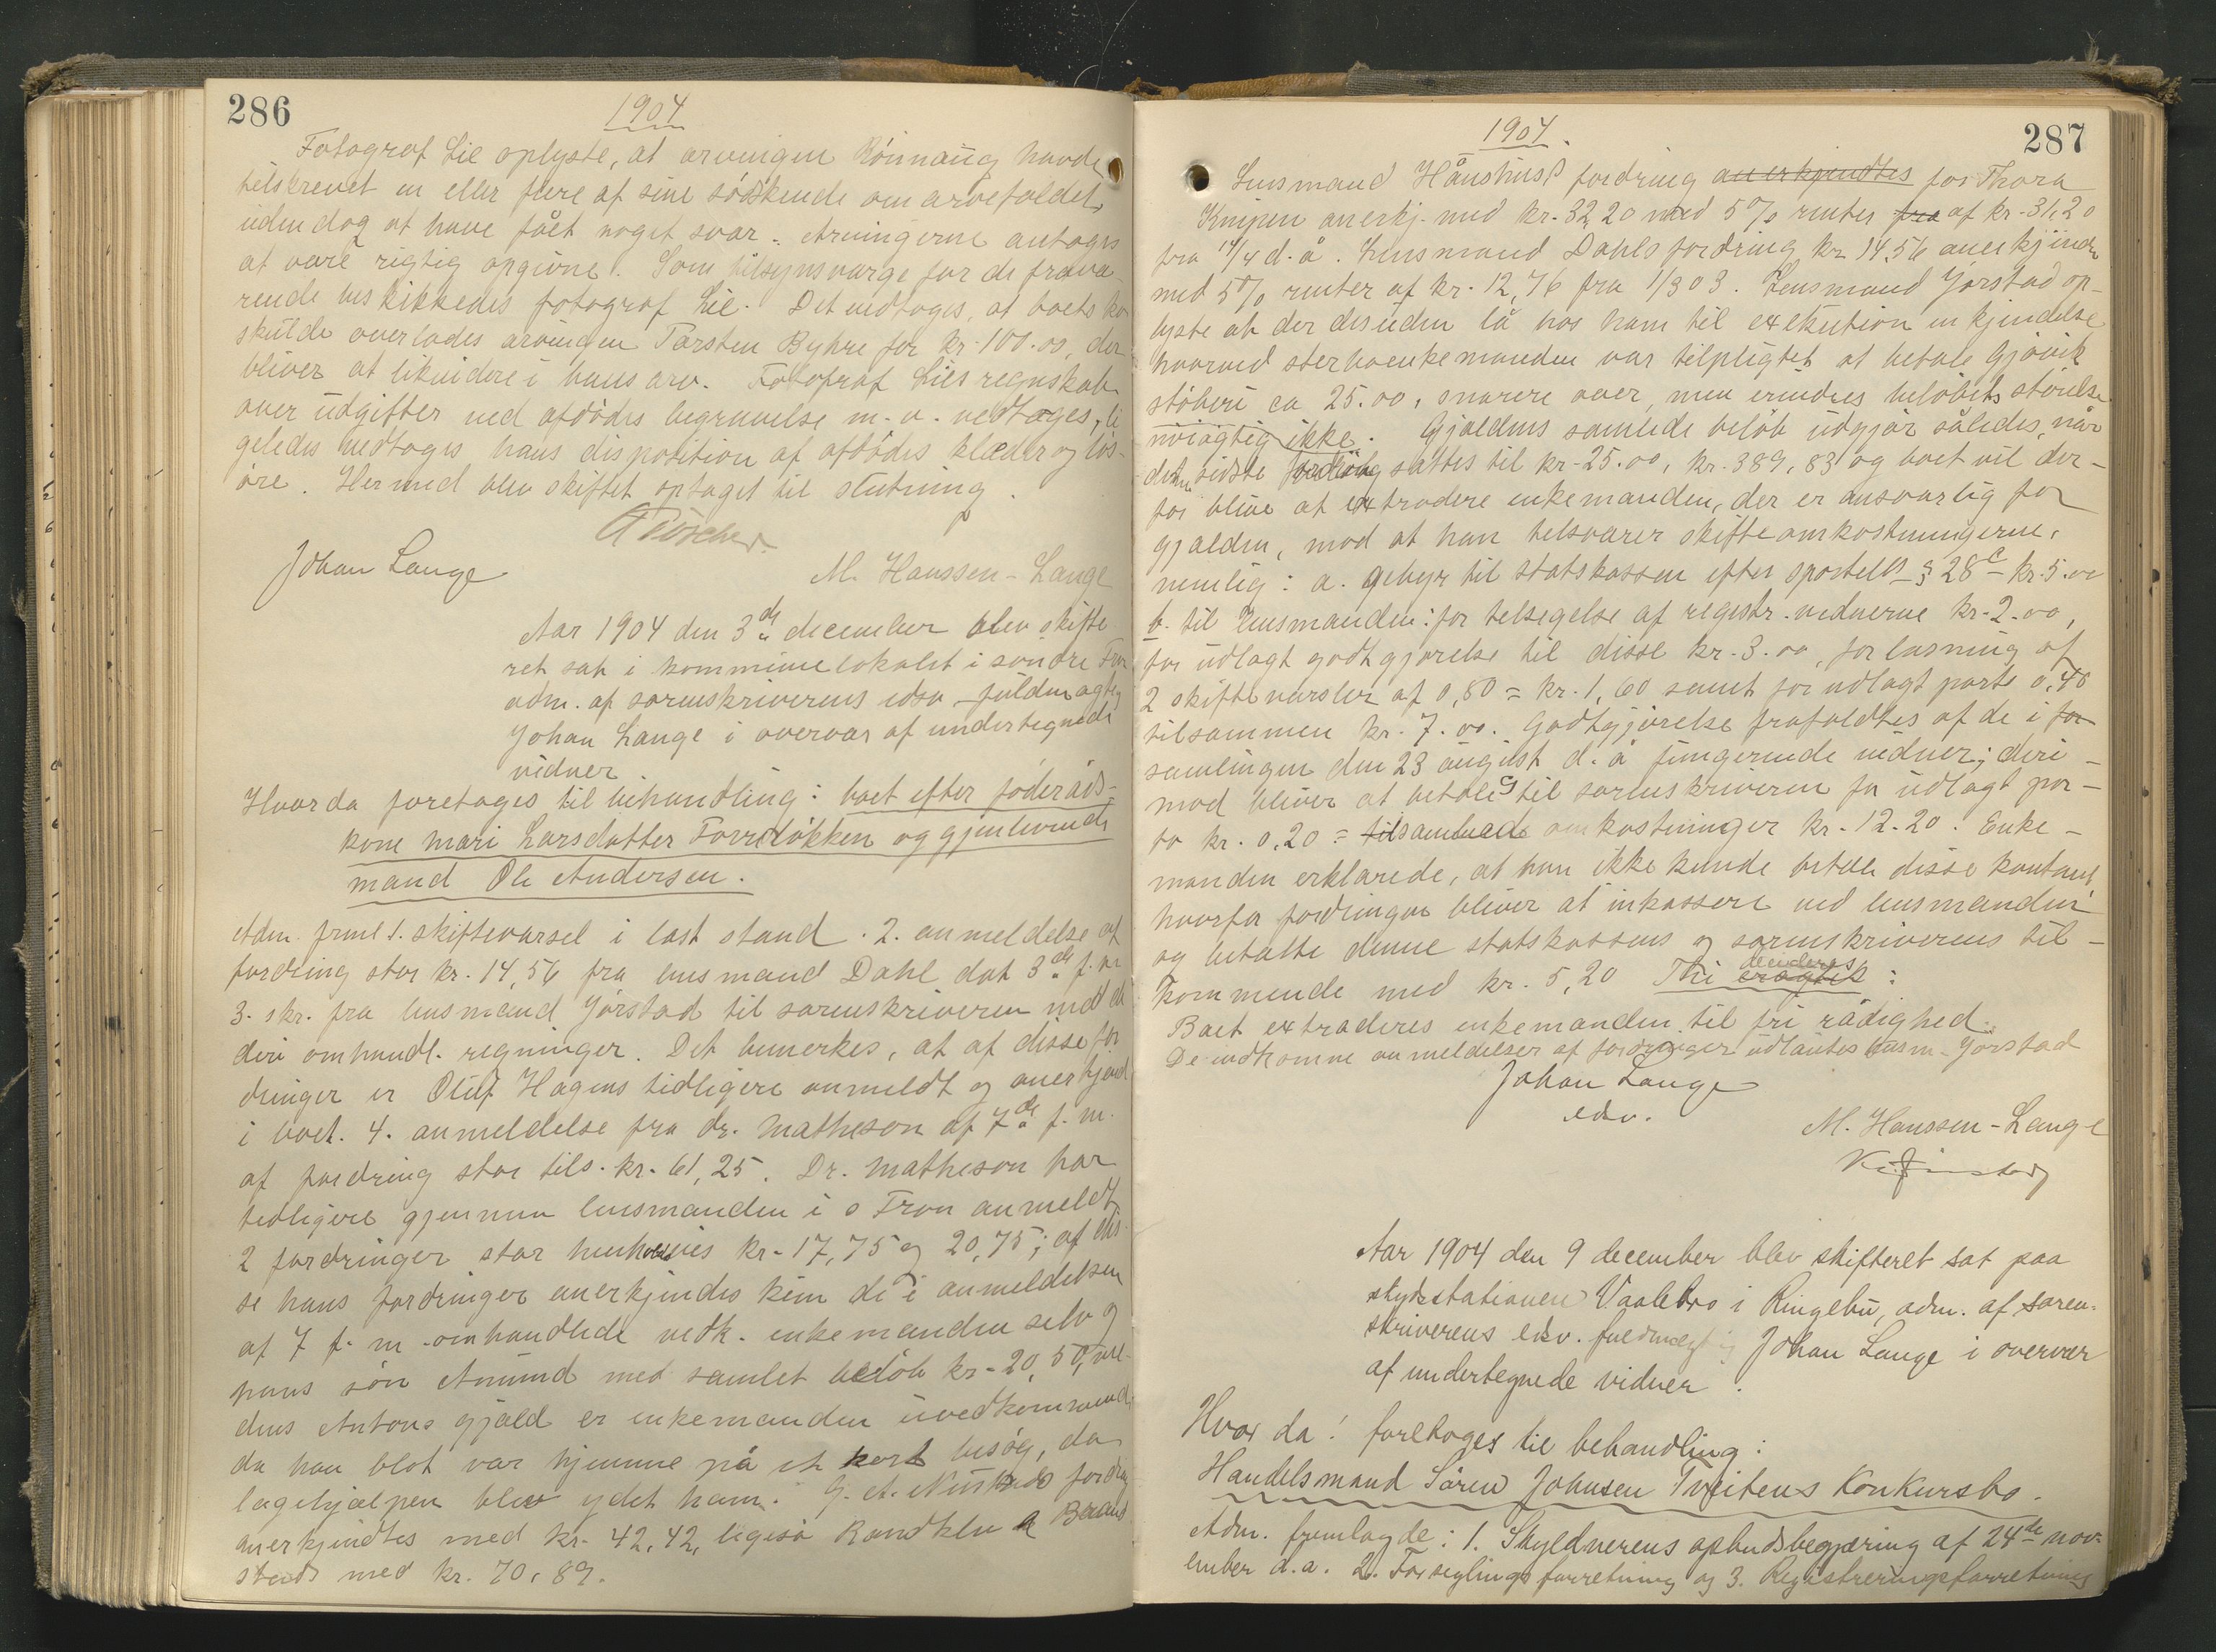 286
1904
Fotograf Lie oplyste, at arvingen Rönnaug havde
tilskrevet en eller flere af sine södskende om arvefaldet,
uden dog at have fået noget svar. Arvingerne antoges
at være rigtig opgivne. Som tilsynsværge for de fravæ-
rende beskikkedes fotograf Lie. Det vedtoges, at boets ko
skulde overlades arvingen Torsten Byhre for kr. 100.00, der
bliver at likvidere i hans arv. Fotograf Lies regnskab
over udgifter ved afdödes begravelse m.v. vedtoges, li
geledes vedtoges hans disposition af afdödes klæder og lös-
öre. Hermed blev skiftet optaget til slutning.
Johan Lange
M. Hanssen-Lange
Aar 1904 den 3de december blev skifte
ret sat i kommunelokalet i söndre Fron
adm. af sorenskriverens edsv. fuldmægtig
Johan Lange i overvær af undertegnede
vidner
Hvor da foretoges til behandling: boet efter föderåds-
kone Mari Larsdatter Forrlökken og gjenlevende
mand Ole Andersen.
Adm. freml. 1. skiftevarsel i læst stand. 2. anmeldelse af
fordring stor kr. 14,56 fra lensmand Dahl dat 3de f. m
3. skr. fra lensmand Jörstad til sorenskriveren med de
deri omhandl. regninger. Det bemerkes, at af disse for
dringer er Oluf Hagens tidligere anmeldt og anerkjend
i boet. 4. anmeldelse fra dr. Matheson af 7de f. m.
af fordring stor tils. kr. 61,25. Dr. Matheson har
tidligere gjennem lensmanden i s Fron anmeldt
2 fordringer stor henholdsvis kr. 17,75 og 20,75; af dis-
se hans fordringer anerkjendes kun de i anmeldelsen
af 7 f. m. omhandlede vedk. enkemanden selv og
hans sön Amund med samlet belöb kr. 20,50, me-
dens Antons gjæld er enkemanden uvedkommende
da han blot var hjemme på et kort besög, da
lægehjælpen blev ydet ham. G. A. fordring
anerkjendtes med kr. 42,42, ligeså Randklev & Braand
stads med kr. 70,89.
287
1904.
Lensmand Hånshus's fordring anerkjendtes for Thora
Knipen anerkj. med kr. 32,20 med 5% renter fra af kr. 31,20
fra 14/4 d. å. Lensmand Dahls fordring kr. 14,56 anerkjendes
med 5% renter af kr. 12,76 fra 1/3 03. Lensmand Jörstad op-
lyste at der desuden lå hos ham til exekution en kjendelse
hvorved sterboenkemanden var tilpligtet at betale Gjövik
stöberi ca 25.00, snarere over, men erindres belöbets störelse
nöiagtig ikke. Gjældens samlede belöb udgjör således, når
denne sidste fordring sættes til kr. 25.00, kr. 389,83 og boet vil der-
for blive at extradere enkemanden, der er ansvarlig for
gjælden, mod at han tilsvarer skifteomkostningerne,
nemlig: a. gebyr til statskassen efter sportell. § 28 c kr. 5.00
b. til lensmanden: for tilsigelse af registr. vidnerne kr. 2.00,
for udlagt godtgjörelse til disse kr. 3.00, for læsning af
2 skiftevarsler af 0,80 = kr. 1,60 samt for udlagt porto 0,40
tilsammen kr. 7.00. Godtgjörelse frafaldtes af de i for
samlingen den 23 august d. å fungerende vidner; deri-
mod bliver at betales til sorenskriveren for udlagt por-
to kr. 0,20 = tilsammen omkostninger kr. 12.20. Enke-
manden erklærede, at han ikke kunde betale disse kontant,
hvorfor fordringen bliver at inkassere ved lensmanden
og betalte denne statskassens og sorenskriverens til-
kommende med kr. 5,20 Thi eragtes decideres:
Boet extraderes enkemanden til fri rådighed.
De indkomne anmeldelser af fordringer udlåntes lensm. Jörstad
Johan Lange
edsv.
M. Hanssen-Lange
Aar 1904 den 9 december blev skifteret sat paa
skydsstationen Vaalebro i Ringebu, adm. af soren-
skriverens edsv. fuldmægtig Johan Lange i overvær
af undertegnede vidner.
Hvor da! foretoges til behandling:
Handelsmand Sören Johnsen Tveitens Konkursbo.
Adm. fremlagde: 1. Skyldnerens opbudsbegjæring af 24de nov-
ember d.a. 2. Forseglingsforretning og 3. Registreringsforretning